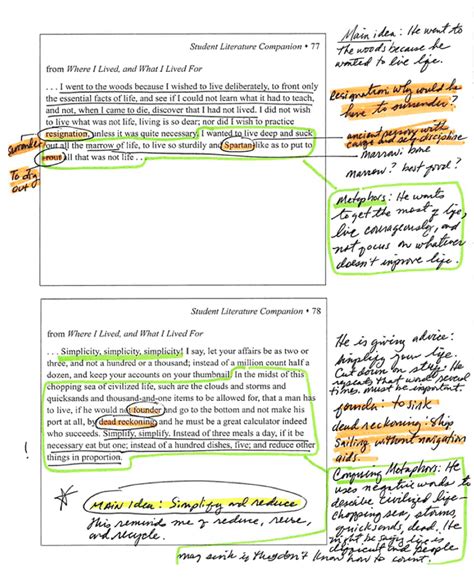 Student Literature Companion • 77
from Where I Lived, and What I Lived For
. . . I went to the woods because I wished to live deliberately, to front only
the essential facts of life, and see if I could not learn what it had to teach,
and not, when I came to die, discover that I had not lived. I did not wish
to live what was not life, living is so dear; nor did I wish to practice
resignation, unless it was quite necessary. I wanted to live deep and suck
out all the marrow of life, to live so sturdily and Spartan like as to put to
rout all that was not life . . .
surrender
To dig
out
Main idea: He went to
the woods because he
wanted to live life.
resignation why would he
have to surrender?
ancient person with
courage and self discipline
marrow: bone
marrow? best food?
Metaphors: He wants
to get the most of life,
live courageously, and
not focus on whatever
doesn't improve life.
Student Literature Companion • 78
from Where I Lived, and What I Lived For
. . . Simplicity, simplicity, simplicity! I say, let your affairs be as two or
three, and not a hundred or a thousand; instead of a million count half a
dozen, and keep your accounts on your thumbnail. In the midst of this
chopping sea of civilized life, such are the clouds and storms and
quicksands and thousand-and-one items to be allowed for, that a man has
to live, if he would not founder and go to the bottom and not make his
port at all, by dead reckoning, and he must be a great calculator indeed
who succeeds. Simplify, simplify. Instead of three meals a day, if it be
necessary eat but one; instead of a hundred dishes, five; and reduce other
things in proportion.
Main Idea: Simplify and reduce
This reminds me of reduce, reuse,
and recycle.
He is giving advice:
simplify your life.
Cut down on stuff. He
repeats that word several
times. must be important.
founder: to sink
dead reckoning: Ship
sailing without navigation
aids.
Confusing Metaphors: He
uses negative words to
describe civilized life-
chopping sea, storms,
quicksands, dead. He
might be saying life is
difficult and people
may sink if they don't know how to count.